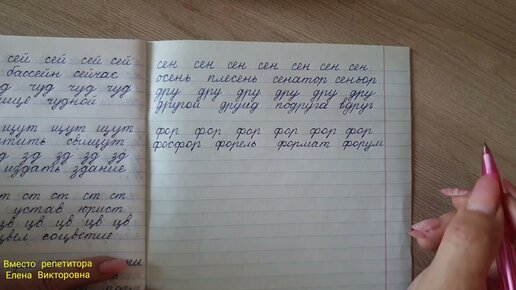 сей сей сей сей
бассейн сейчас
чуд чуд чуд
чудной
ищут ищут ищут
зд зд зд зд
издать здание
ст ст ст ст
устав юрист
цв цв цв цв цв
соцветие
сен сен сен сен сен сен сен
осень плесень сенатор сеньор
дру дру дру дру дру дру
другой друид подруга вдруг
фор фор фор фор фор фор
фосфор форель формат форум
Вместо репетитора
Елена Викторовна